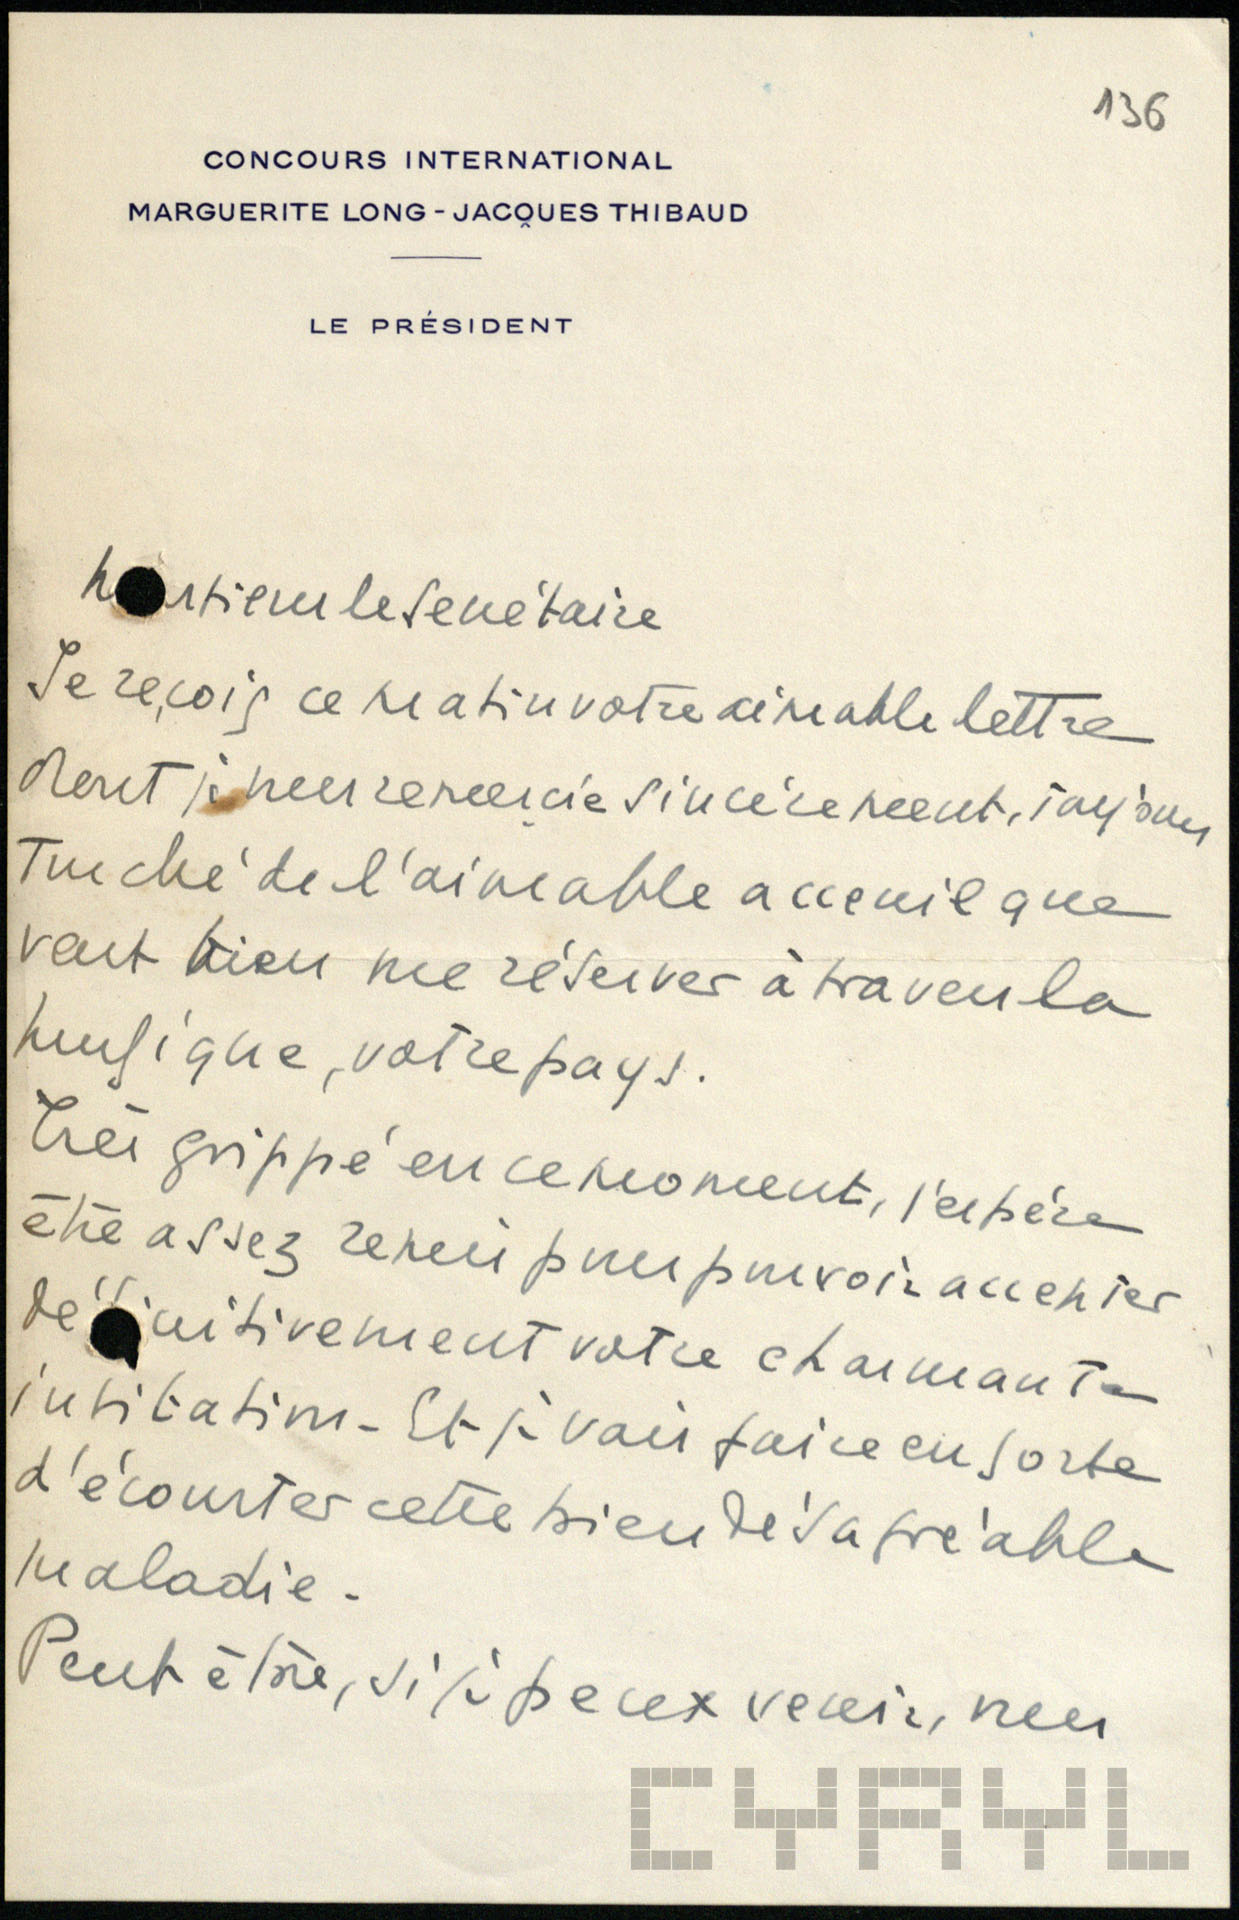 136
CONCOURS INTERNATIONAL
MARGUERITE LONG - JACQUES THIBAUD
LE PRÉSIDENT
Monsieur le Secrétaire
Je reçois ce matin votre aimable lettre
dont je vous remercie sincèrement, toujours
touché de l'aimable accueil que
veut bien me réserver à travers la
musique, votre pays.
Très grippé en ce moment, j'espère
être assez remis pour pouvoir accepter
définitivement votre charmante
invitation - Et je vais faire en sorte
d'écourter cette bien désagréable
maladie -
Peut être, si je peux venir, nous
CYRYL